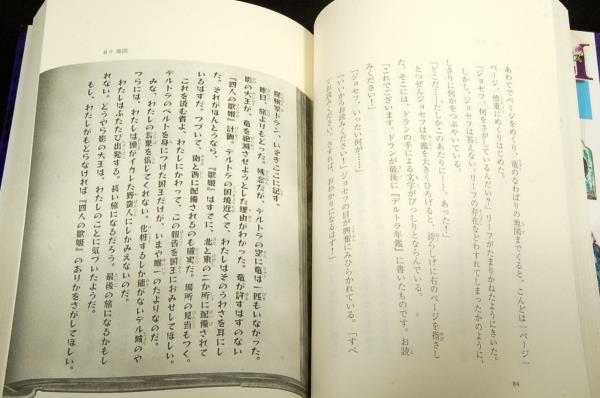 あわててページをめくり、竜のなわばりの地図までくると、こんどは一ページ一
ページ、慎重にめくりはじめた。
「ジョセフ、何をさがしているんだい？」リーフがたまりかねたようにきいた。
しかし、ジョセフは答えない。リーフの存在などわすれてしまったかのように、
しきりに何かをつぶやいている。
「どこだ…たしかこのあたりに……あった！」
とつぜんジョセフは年鑑を大きくひろげると、誇らしげに右のページを指さし
た。そこには、ドランの手による文字がびっしりとならんでいる。
「これでございます、ドランが最後に『デルトラ年鑑』に書いたものです。お読
みください！」
「ジョセフ、いったい何が……」
「いいからお読みください！」ジョセフの目が興奮にみひらかれている。「すべ
てお読みください。さすれば、おわかりになるはず！」
84
6 地図
探検家ドラン、いそぎここに記す。
昨日、旅よりもどった。残念だが、デルトラの空に竜は一匹もいなかった。
影の大王が、竜を絶滅させようとした理由がわかった。竜が許すはずのない
『四人の歌姫』計画。デルトラの国境近くで、わたしはそのうわさを耳にし
た。それがほんとうなら、『歌姫』はすでに、北と東の二か所に配備されて
いるはずだ。つづいて、南と西に配備されるのも確実だ。場所の見当もつく。
これを読む者よ、わたしにかわって、この報告を国王におみせしてほしい。
デルトラのベルトを身につけた国王だけが、いまや唯一のたよりなのだ。
みな、わたしの言葉を信じてくれない。化粧するしか能がないデル城のや
つらには、わたしは頭がイカレた野蛮人にしかみえないのだ。
わたしはふたたび出発する。長い旅になるだろう。最後の旅になるかもし
れない。どうやら影の大王は、わたしのことに気づいたようだ。
もし、わたしがもどらなければ『四人の歌姫』のありかをさがしてほしい。